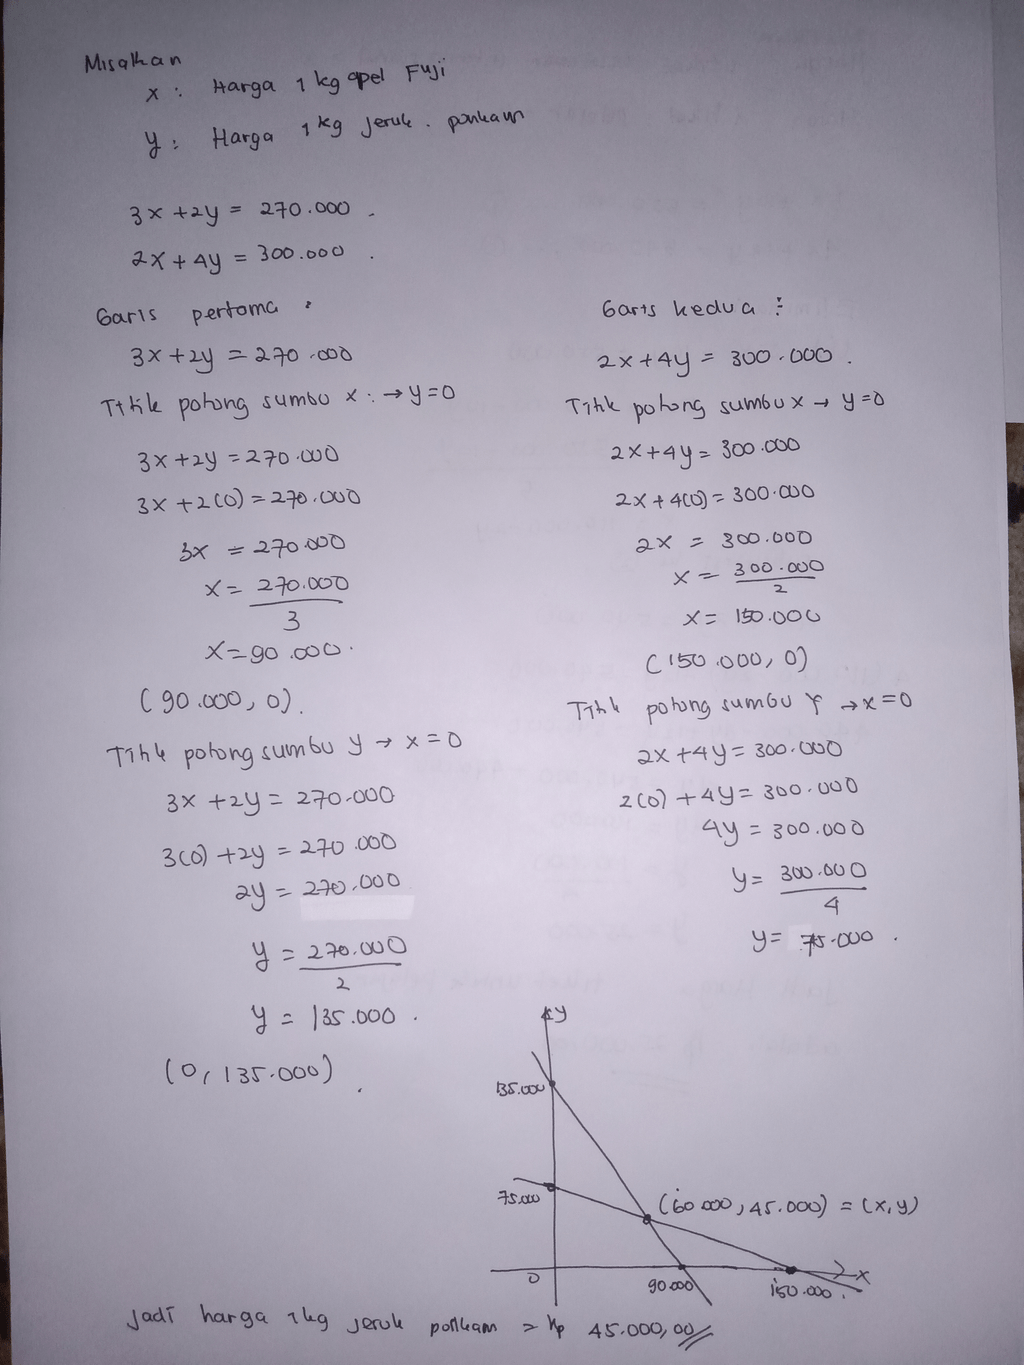 Misalkan
x : Harga 1 kg apel Fuji
y : Harga 1 kg jeruk. ponkam
3x + 2y = 270.000
2x + 4y = 300.000
Garis pertama :
3x + 2y = 270.000
Titik potong sumbu x : → y=0
3x + 2y = 270.000
3x + 2(0) = 270.000
3x = 270.000
x = 270.000
3
x = 90.000.
(90.000, 0).
Titik potong sumbu y → x = 0
3x + 2y = 270.000
3(0) + 2y = 270.000
2y = 270.000
y = 270.000
2
y = 135.000.
(0, 135.000).
Garis kedua :
2x + 4y = 300.000.
Titik potong sumbu x → y = 0
2x + 4y = 300.000
2x + 4(0) = 300.000
2x = 300.000
x = 300.000
2
x = 150.000
(150.000, 0)
Titik potong sumbu Y → x = 0
2x + 4y = 300.000
2(0) + 4y = 300.000
4y = 300.000
y = 300.000
4
y = 75.000.
y
135.000
75.000
(60.000, 45.000) = (x, y)
0
90.000
150.000.
x
Jadi harga 1 kg jeruk ponkam = Rp 45.000,00